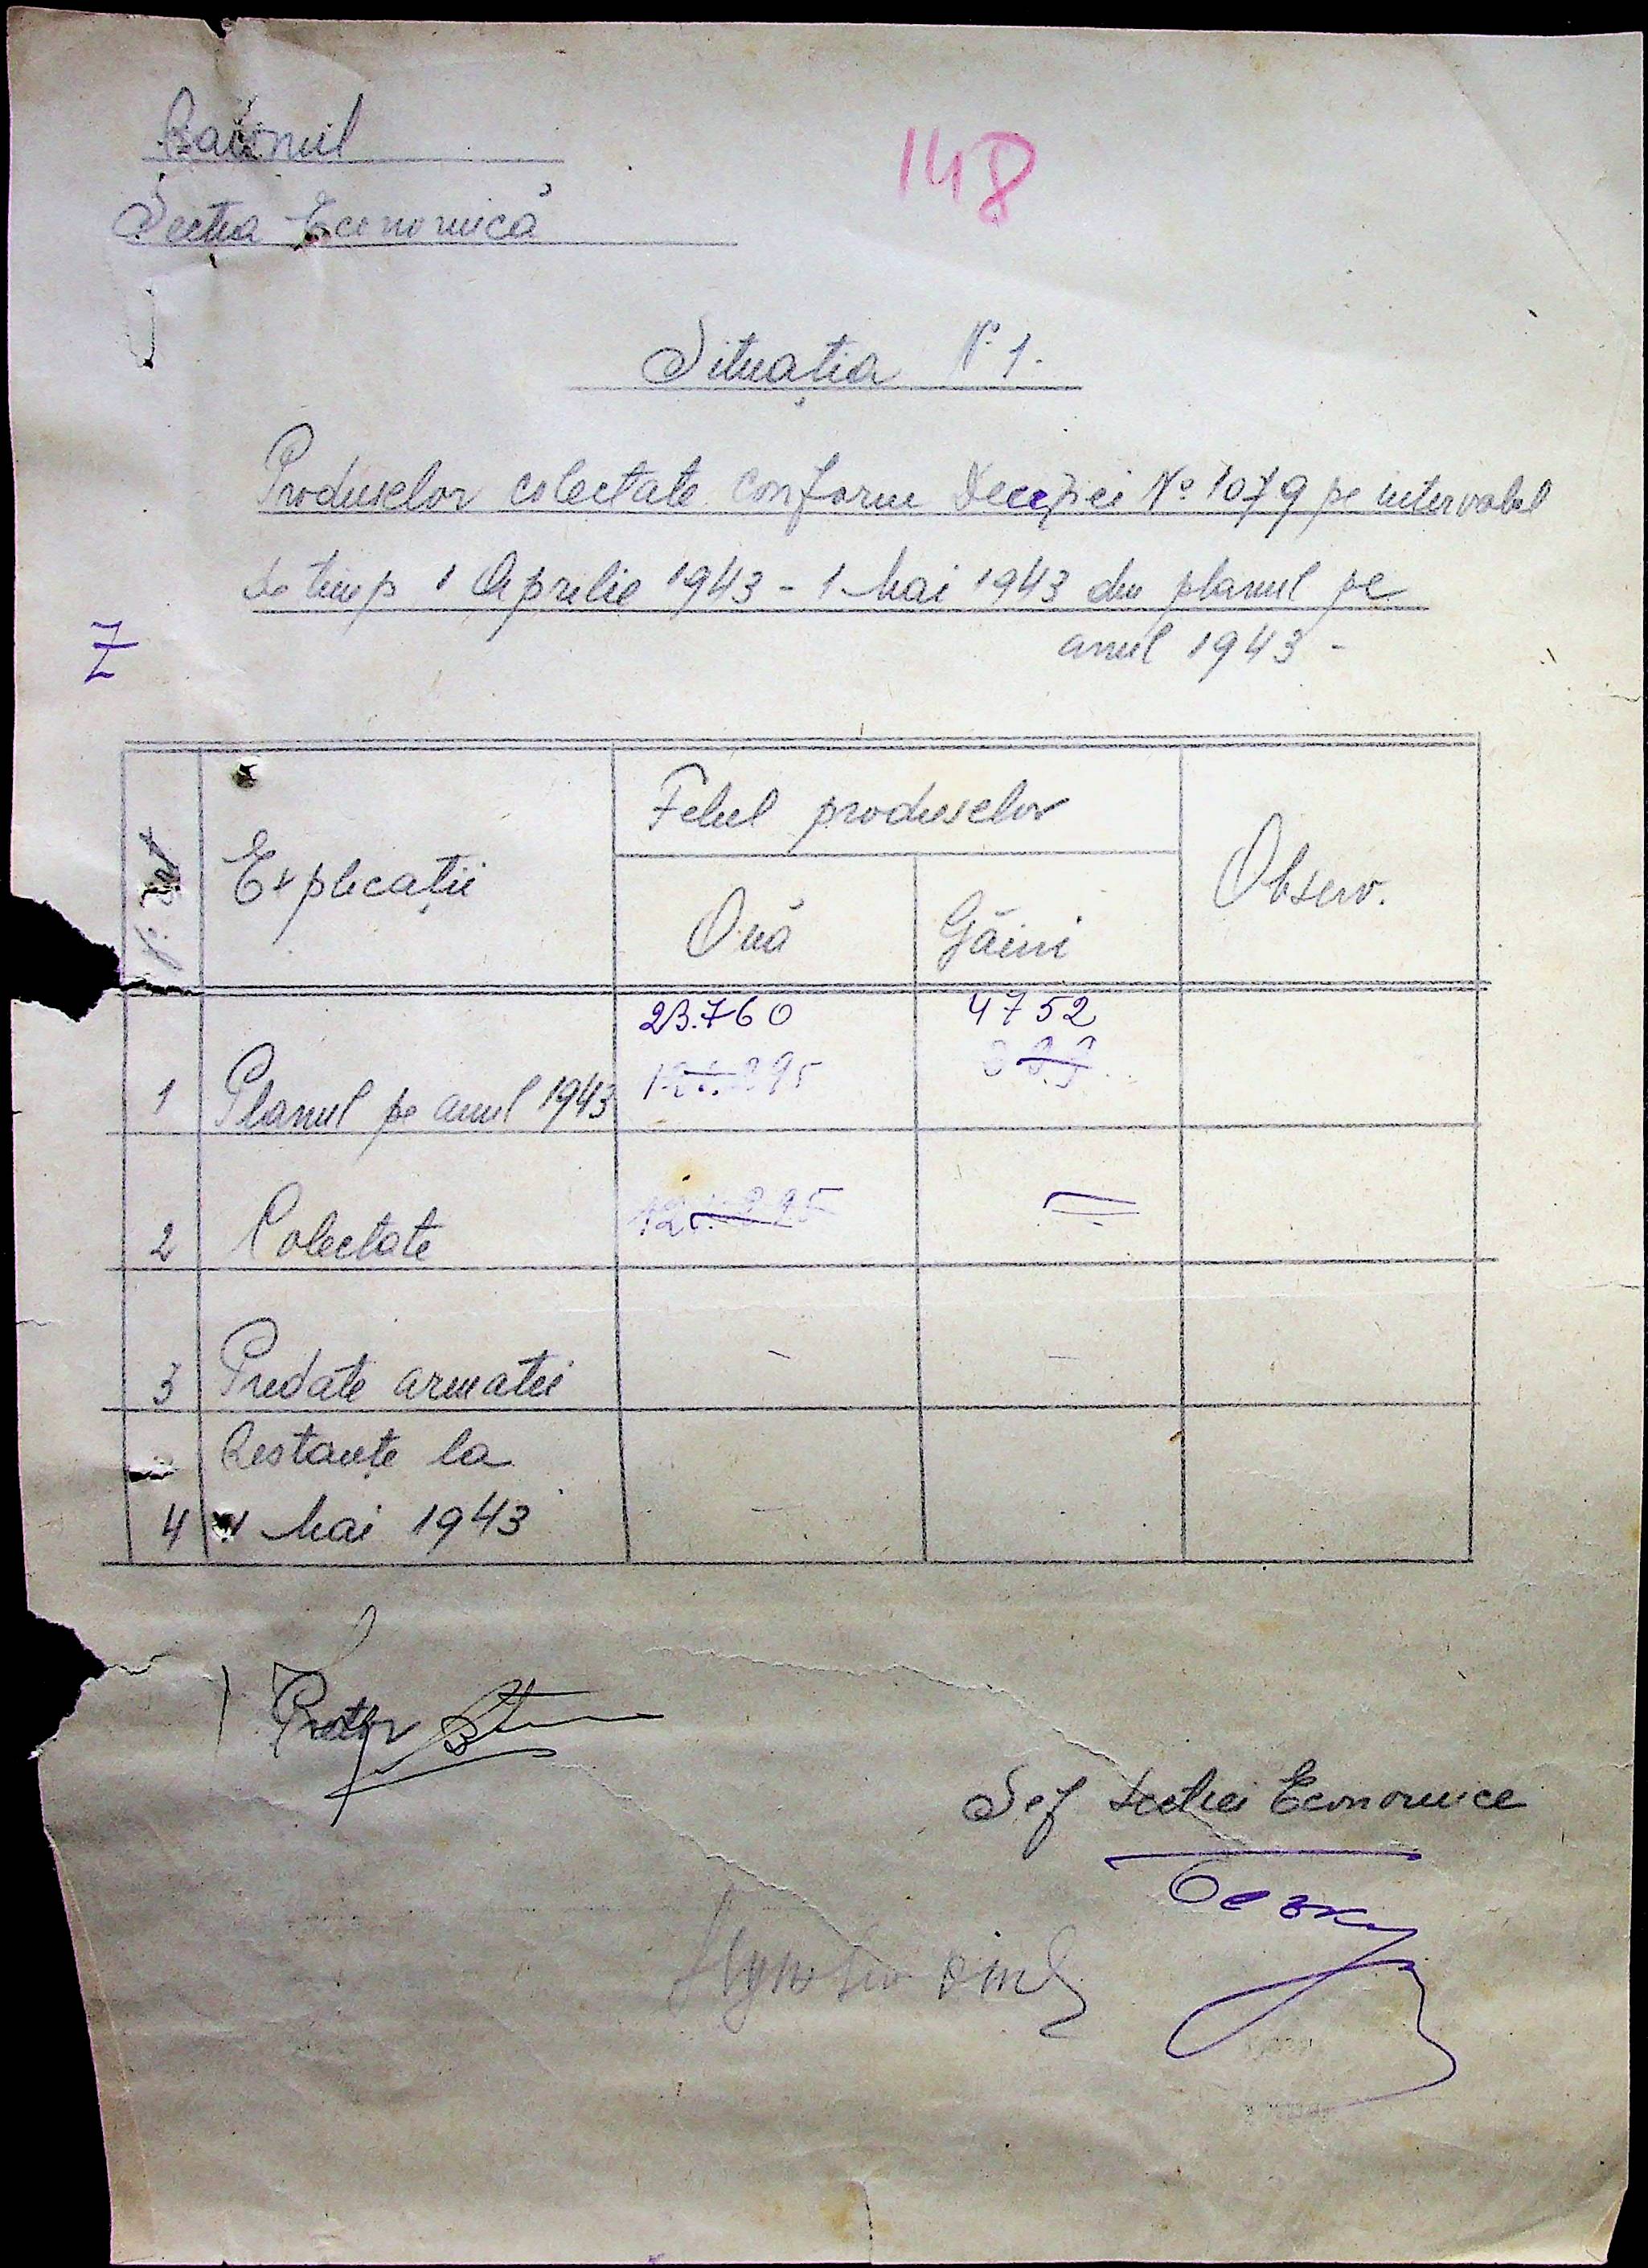 Raionul
148
Secția Economică
Situația No 1.
Produselor colectate conform Deciziei No 1079 pe intervalul
de timp 1 Aprilie 1943 - 1 Mai 1943 din planul pe
anul 1943 -
Z
Explicații
Felul produselor
Observ.
Ouă Găini
23.760 4752
1 Planul pe anul 1943
2 Colectate =
3 Predate armatei - -
Restanțe la
4 1 Mai 1943 -
Pretor
Șef Secției Economice